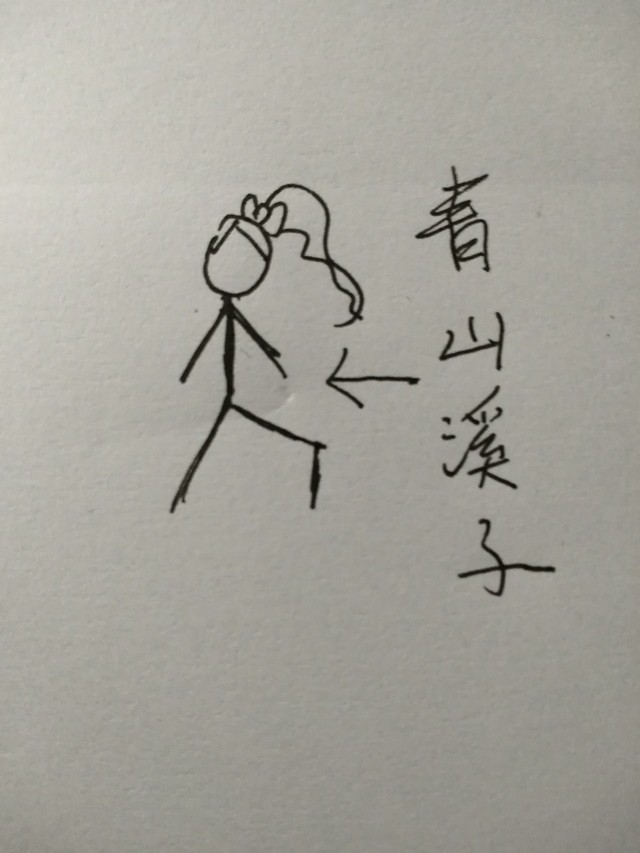 青山溪子